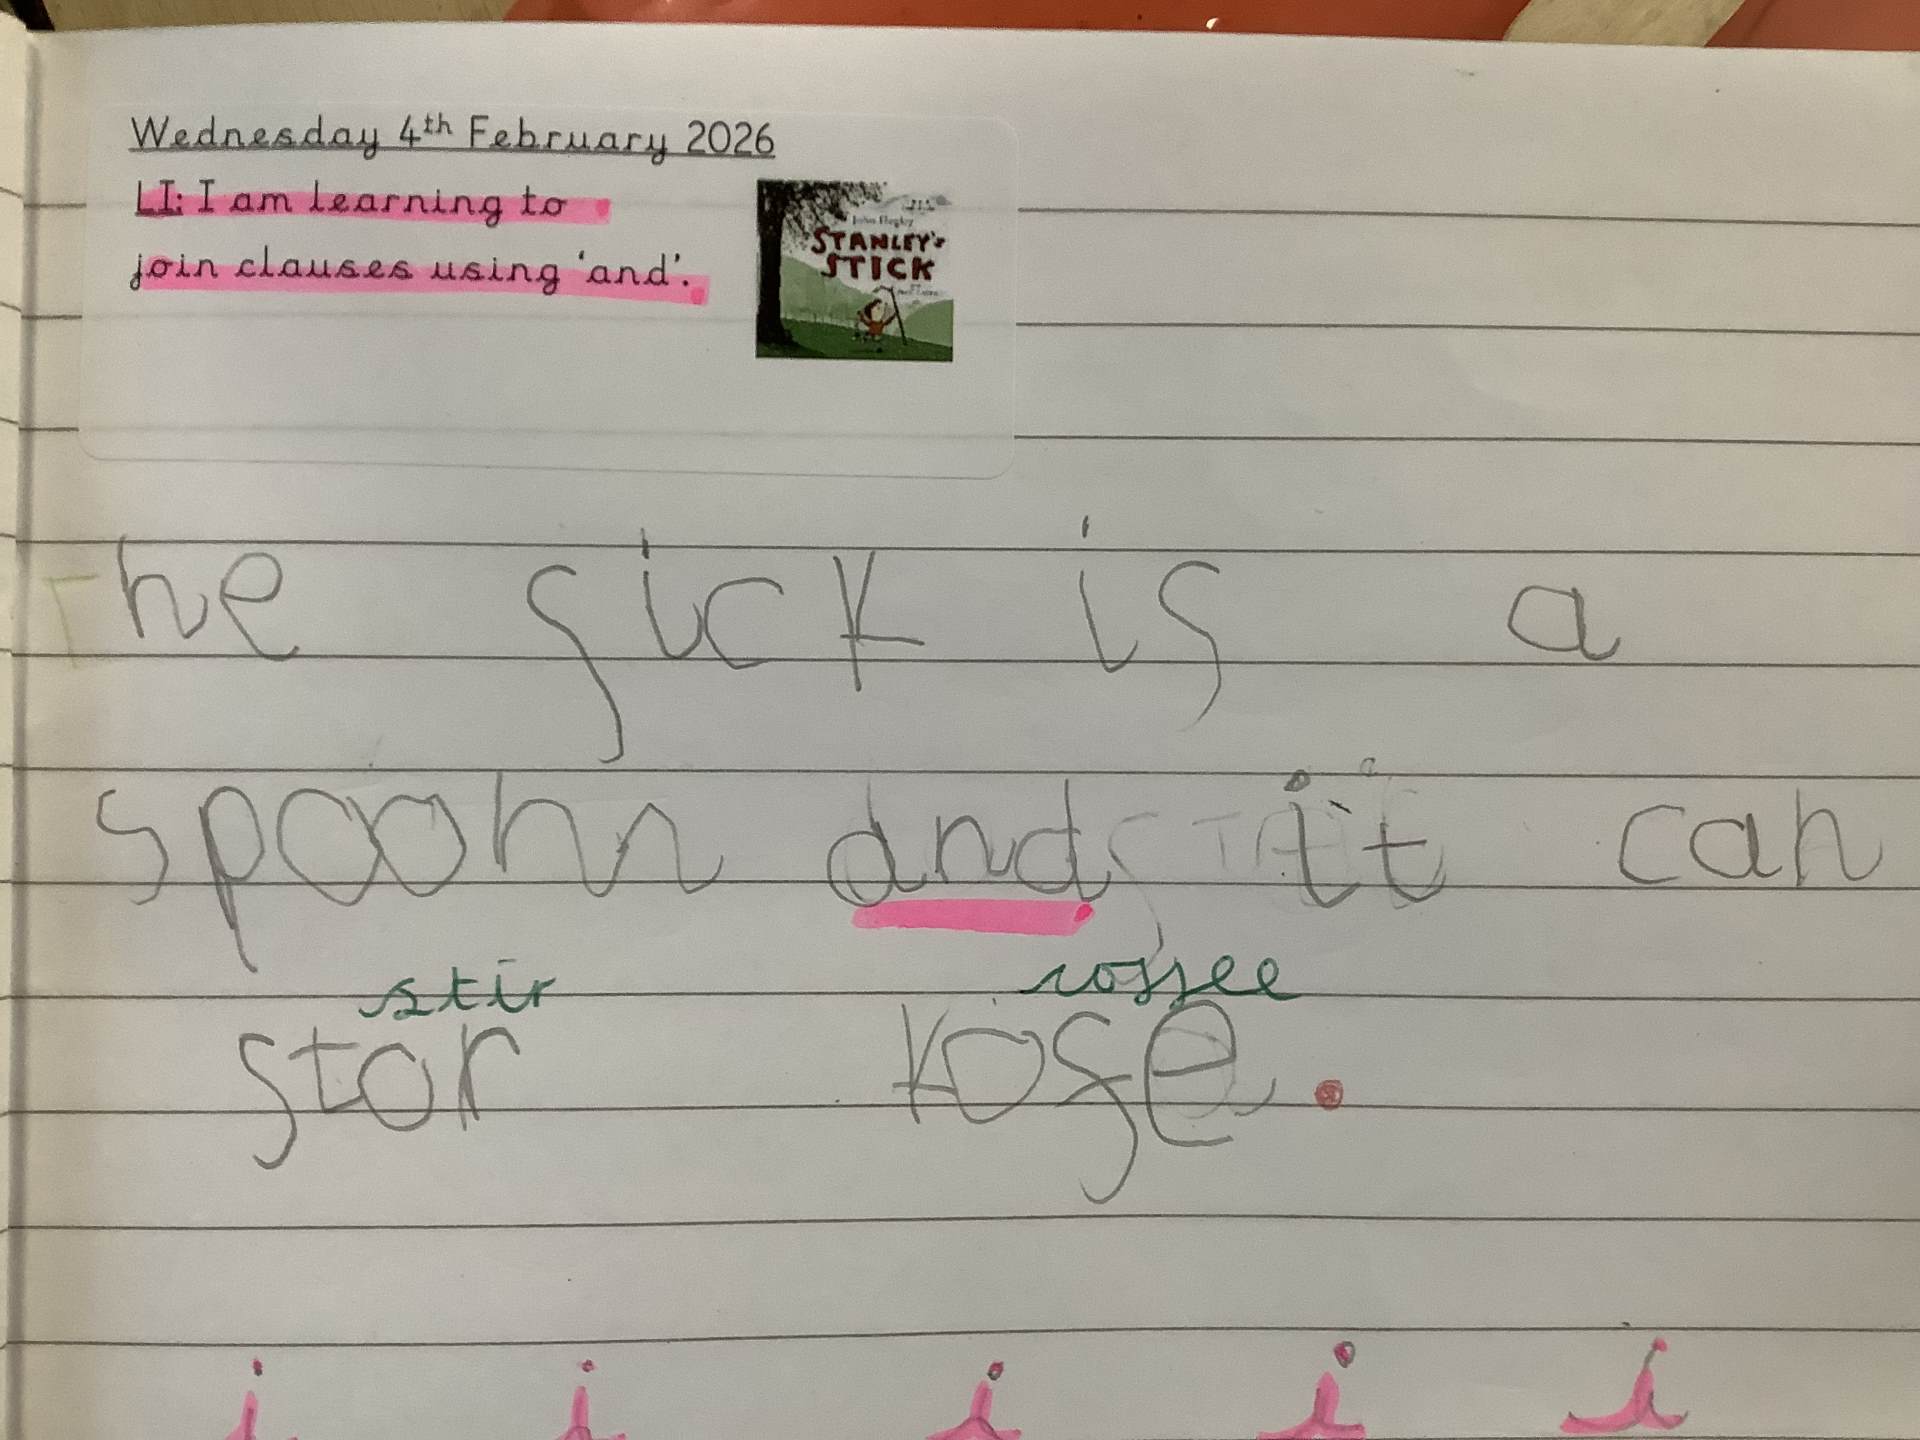 Wednesday 4th February 2026
LI: I am learning to
join clauses using 'and'.
John Hegley
STANLEY'S
STICK
The sick is a
spoohn and it can
stir coffee
stor kofe.
i i i i i